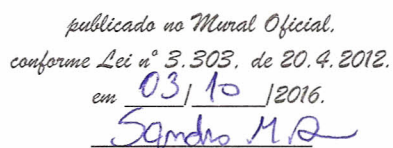 publicado no Mural Oficial,
conforme Lei n° 3.303, de 20.4.2012.
em 03/10/2016.
Sandro M.R